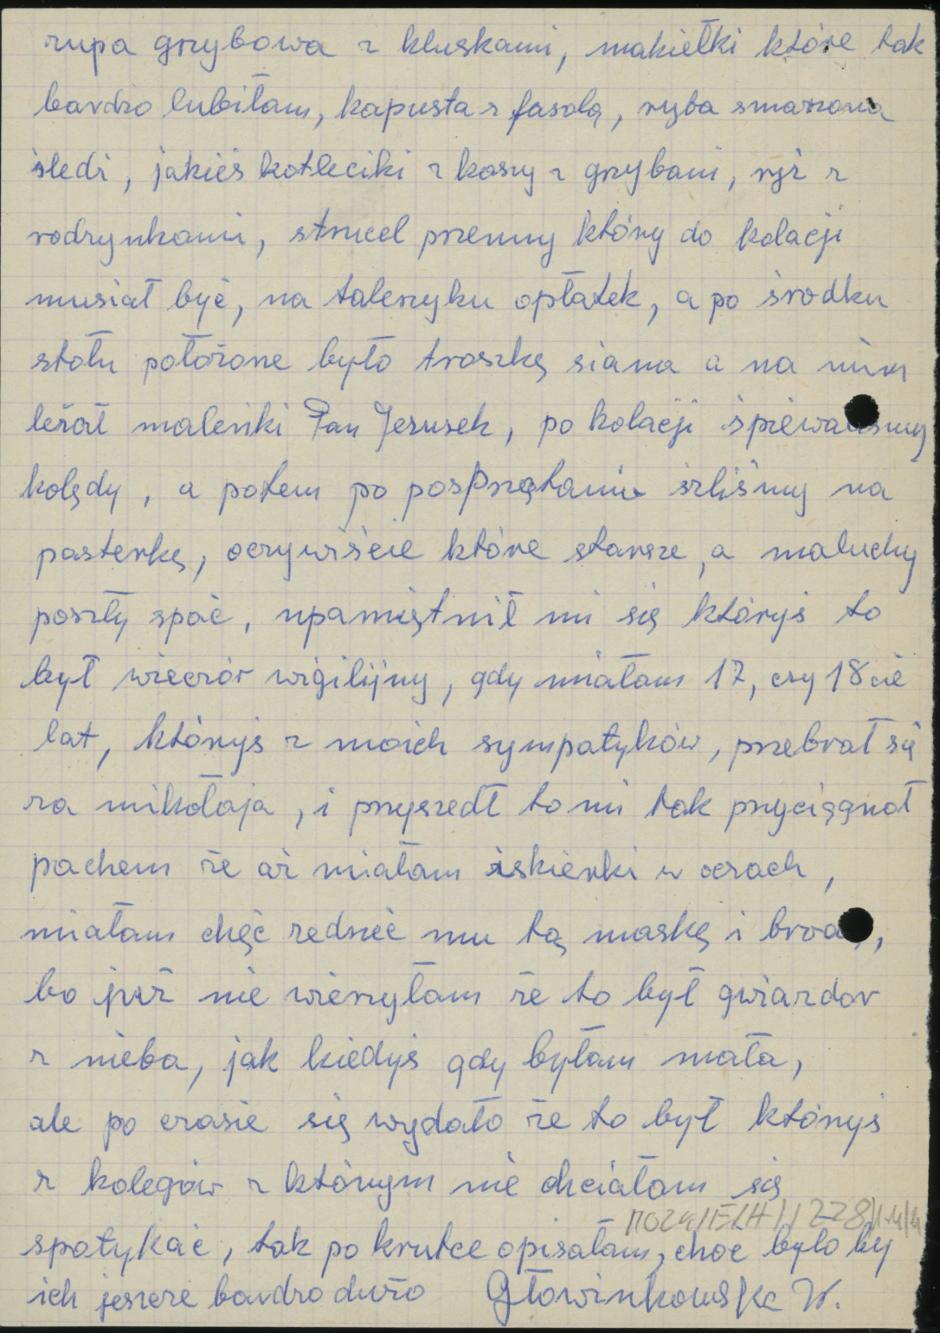 zupa grzybowa z kluskami, makiełki które tak
bardzo lubiłam, kapusta z fasolą, ryba smażona
śledż, jakieś kotleciki z kaszy z grzybami, ryż z
rodzynkami, strucel pszenny który do kolacji
musiał być, na talerzyku opłatek, a po środku
stołu położone było troszkę siana a na nim
leżał maleńki Pan Jezusek, po kolacji śpiewaliśmy
kolędy, a potem po posprzątaniu szliśmy na
pasterkę, oczywiście które starsze, a maluchy
poszły spać, upamiętnił mi się któryś to
był wieczór wigilijny, gdy miałam 17, czy 18cie
lat, któryś z moich sympatyków, przebrał się
za mikołaja, i przyszedł to mi tak przyciągnoł
pachem że aż miałam iskierki w oczach,
miałam chęć zedrzeć mu tą maskę i brodę,
bo już nie wierzyłam że to był gwiazdor
z nieba, jak kiedyś gdy byłam mała,
ale po czasie się wydało że to był któryś
z kolegów z którym nie chciałam się
spotykać, tak po krutce opisałam, choć było by
ich jeszcze bardzo dużo Głowinkowska W.